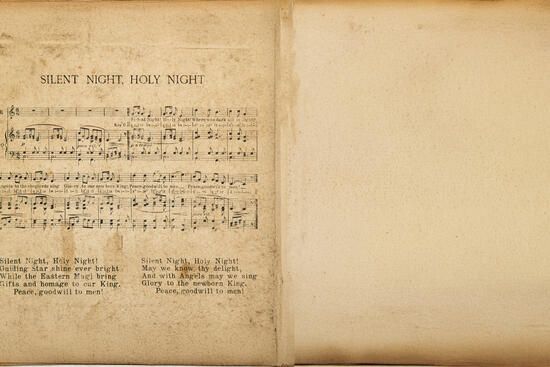 SILENT NIGHT, HOLY NIGHT
Silent Night! Holy Night!
Angels to the shepherds sing Glo-ry to our new born King, Peace, goodwill to men, Peace, goodwill to men,
Silent Night, Holy Night!
Guiding Star shine ever bright
While the Eastern Magi bring
Gifts and homage to our King.
Peace, goodwill to men!
Silent Night, Holy Night!
May we know thy delight,
And with Angels may we sing
Glory to the newborn King.
Peace, goodwill to men!